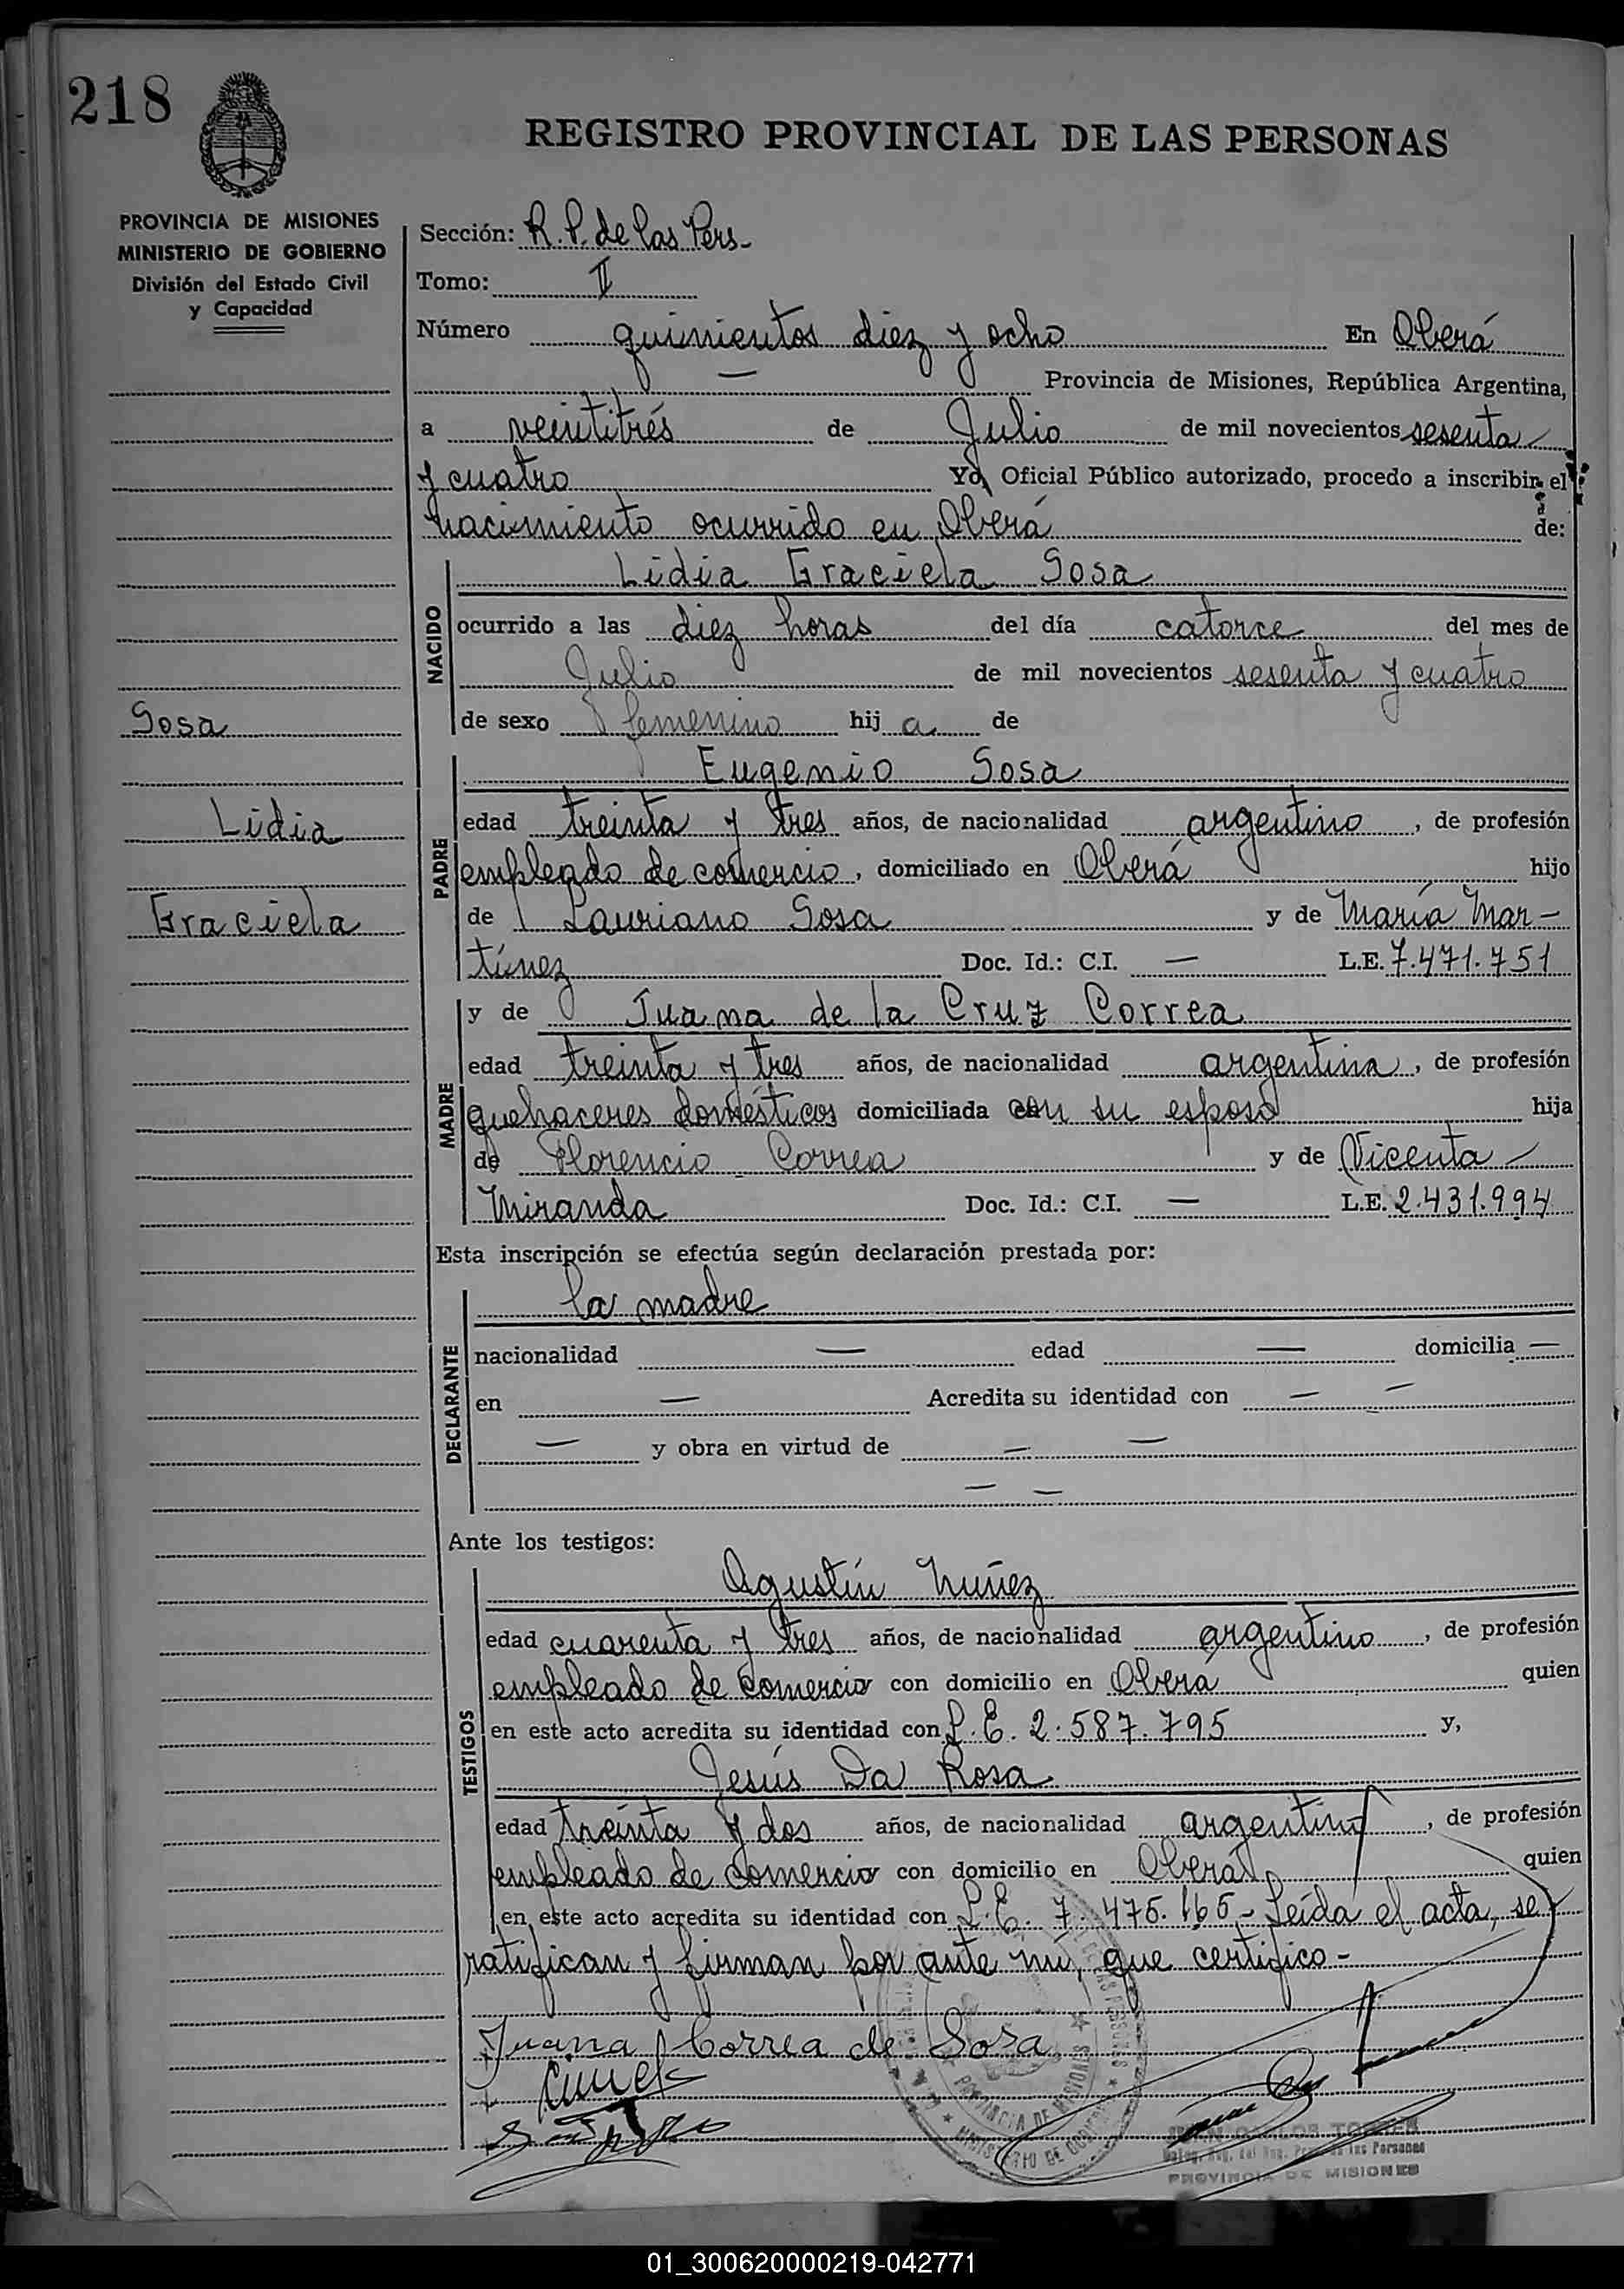 218
REGISTRO PROVINCIAL DE LAS PERSONAS
PROVINCIA DE MISIONES
MINISTERIO DE GOBIERNO
División del Estado Civil
y Capacidad
Sección: R. P. de las Pers-
Tomo: II
Número quinientos diez y ocho En Oberá
— Provincia de Misiones, República Argentina,
a veintitrés de Julio de mil novecientos sesenta
y cuatro Yo, Oficial Público autorizado, procedo a inscribir el
nacimiento ocurrido en Oberá de:
NACIDO
Lidia Graciela Sosa
ocurrido a las diez horas del día catorce del mes de
Julio de mil novecientos sesenta y cuatro
de sexo femenino hij a de
Sosa
Lidia
Graciela
PADRE
Eugenio Sosa
edad treinta y tres años, de nacionalidad argentino, de profesión
empleado de comercio, domiciliado en Oberá hijo
de Lauriano Sosa y de María Mar-
tínez Doc. Id.: C.I. — L.E. 7.471.751
MADRE
y de Juana de la Cruz Correa
edad treinta y tres años, de nacionalidad argentina, de profesión
quehaceres domésticos domiciliada con su esposo hija
de Florencio Correa y de Vicenta
Miranda Doc. Id.: C.I. — L.E. 2.431.994
Esta inscripción se efectúa según declaración prestada por:
DECLARANTE
la madre
nacionalidad — edad — domicilia —
en — Acredita su identidad con — —
— y obra en virtud de — —
— —
Ante los testigos:
TESTIGOS
Agustín Núñez
edad cuarenta y tres años, de nacionalidad argentino, de profesión
empleado de comercio con domicilio en Oberá quien
en este acto acredita su identidad con L.E. 2.587.795 y,
Jesús Da Rosa
edad treinta y dos años, de nacionalidad argentino, de profesión
empleado de comercio con domicilio en Oberá quien
en este acto acredita su identidad con L.E. 7.475.165.- Leída el acta, se
ratifican y firman por ante mí, que certifico-
Juana Correa de Sosa
PROVINCIA DE MISIONES
MINISTERIO DE GOBIERNO
PROVINCIA DE MISIONES
01_300620000219-042771